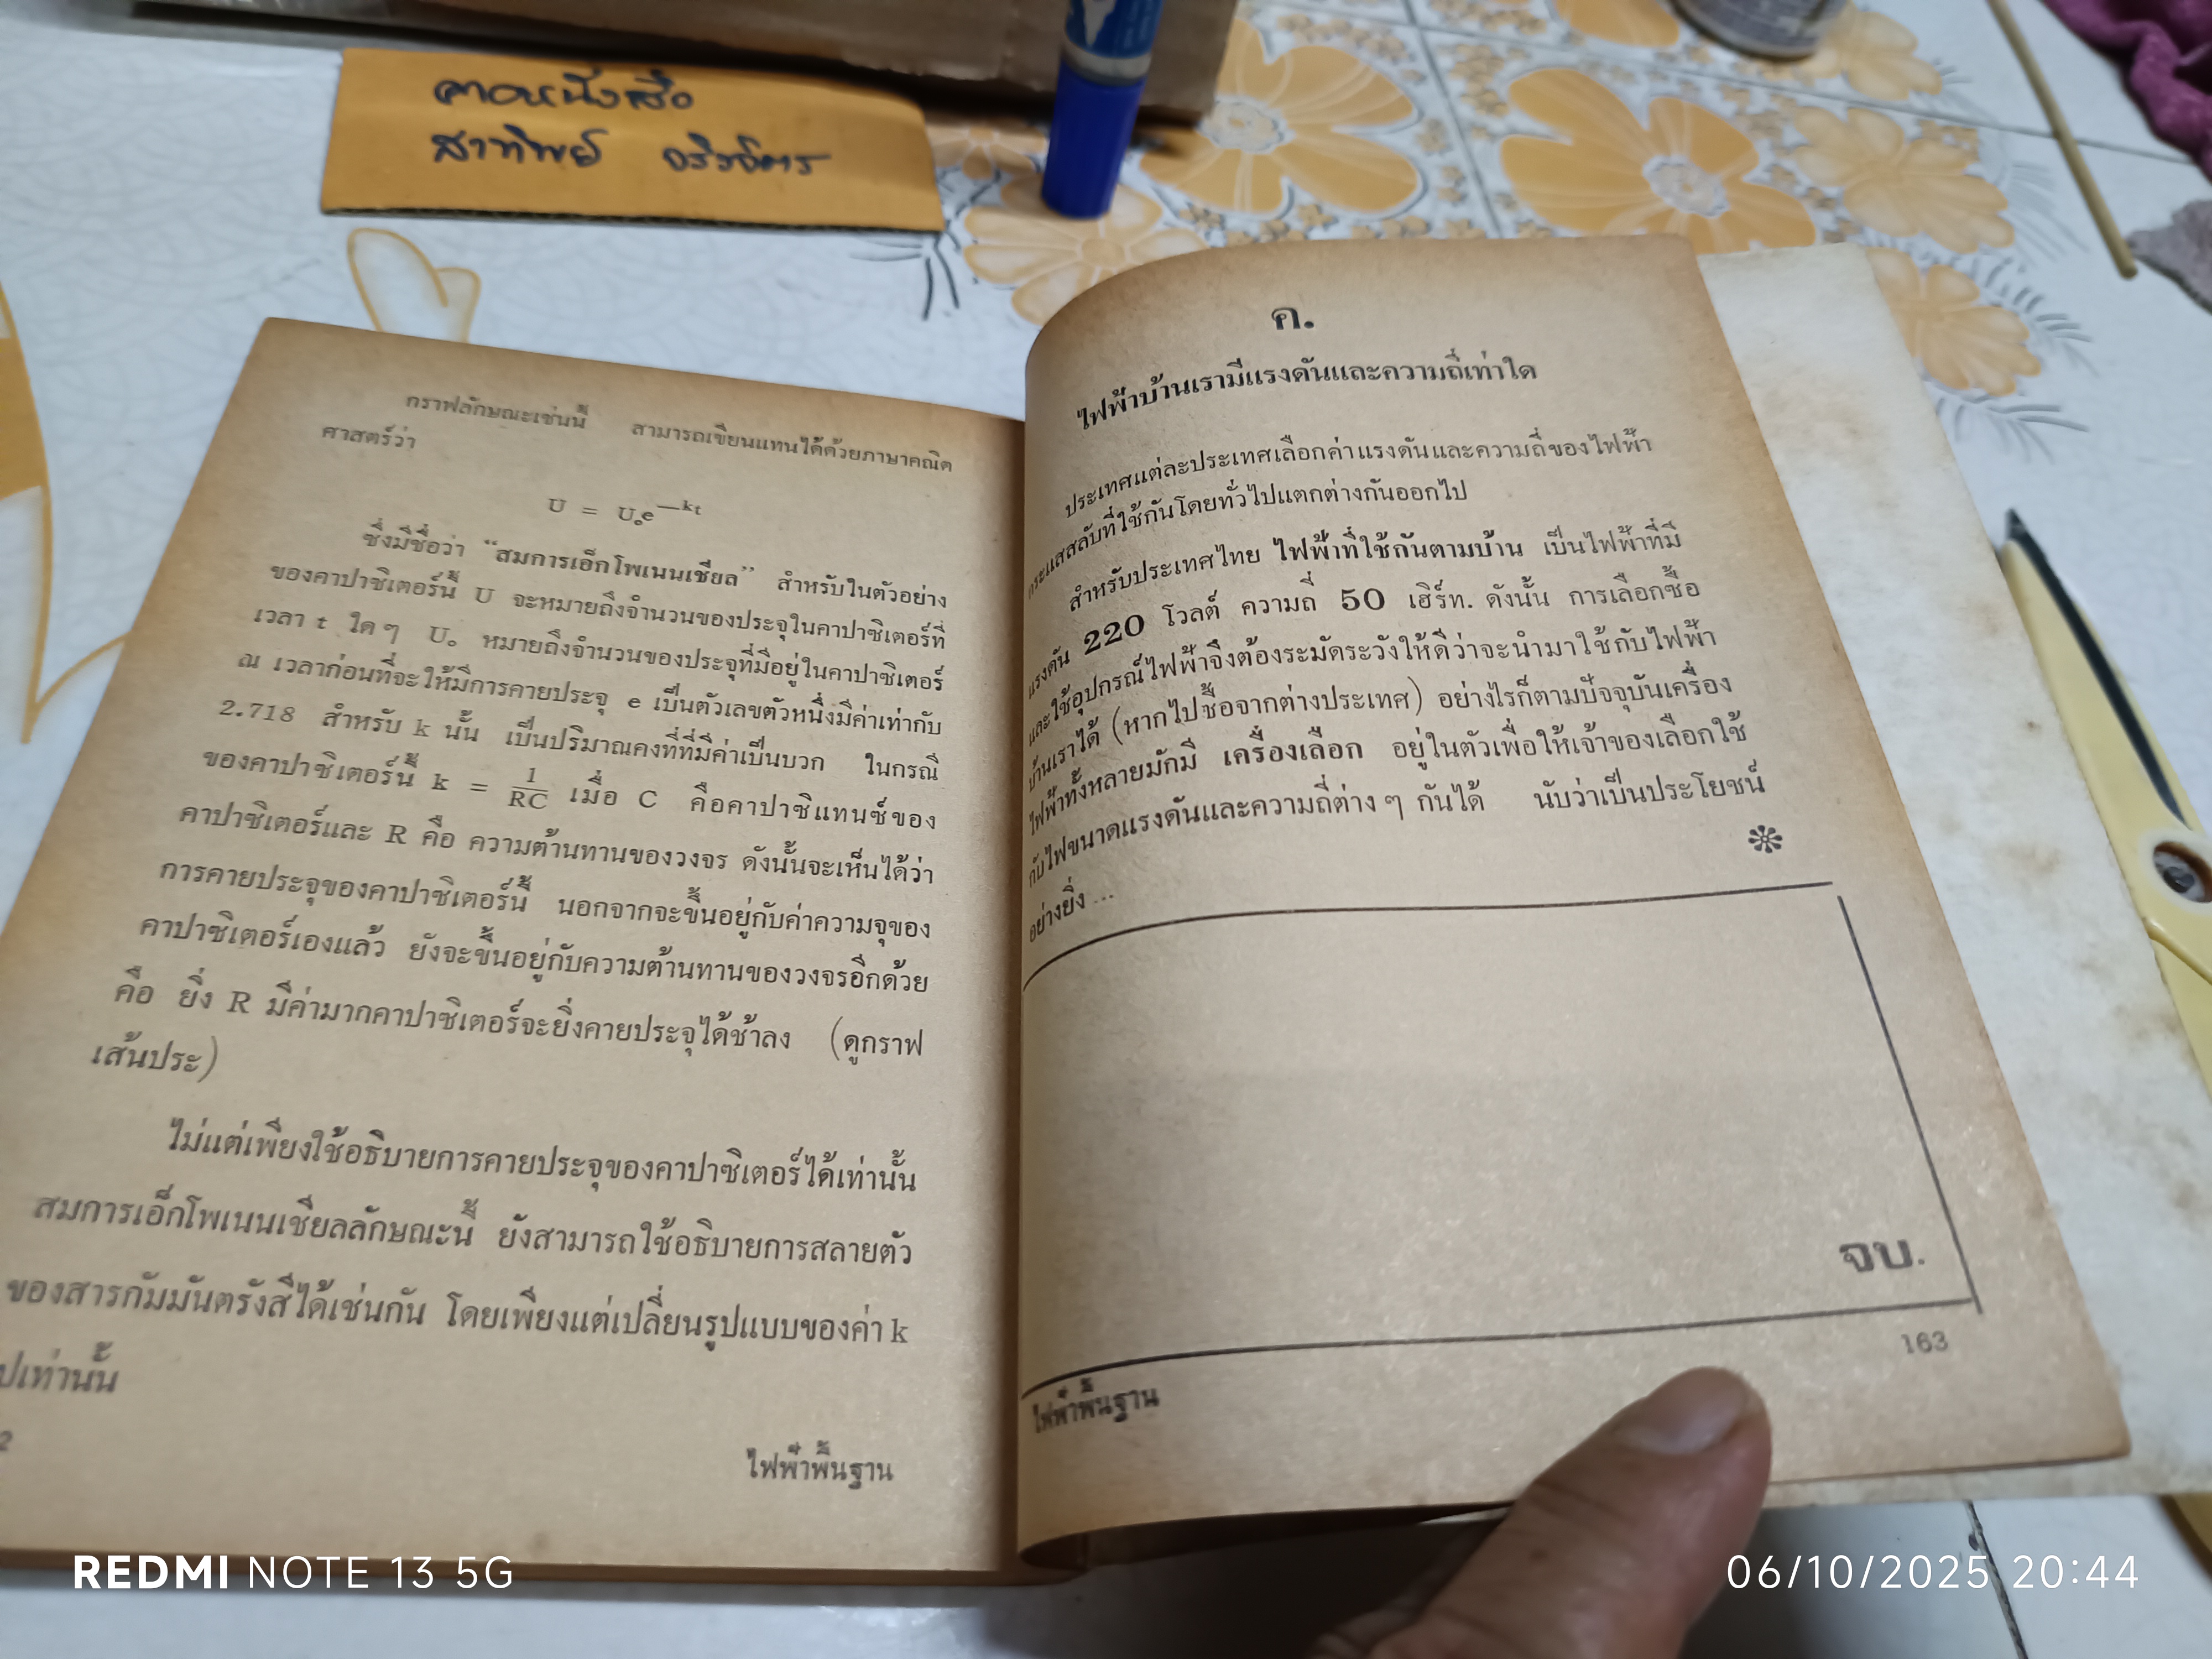 ตาดหนังสือ
สาทิพย์
กราฟลักษณะเช่นนี้ สามารถเขียนแทนได้ด้วยภาษาคณิต
ศาสตร์ว่า
U = U₀e^—kt
ซึ่งมีชื่อว่า “สมการเอ็กโพเนนเชียล” สำหรับในตัวอย่าง
ของคาปาซิเตอร์นี้ U จะหมายถึงจำนวนของประจุในคาปาซิเตอร์ที่
เวลา t ใดๆ U₀ หมายถึงจำนวนของประจุที่มีอยู่ในคาปาซิเตอร์
ณ เวลาก่อนที่จะให้มีการคายประจุ e เป็นตัวเลขตัวหนึ่งมีค่าเท่ากับ
2.718 สำหรับ k นั้น เป็นปริมาณคงที่ที่มีค่าเป็นบวก ในกรณี
ของคาปาซิเตอร์นี้ k = 1/RC เมื่อ C คือคาปาซิแทนซ์ของ
คาปาซิเตอร์และ R คือ ความต้านทานของวงจร ดังนั้นจะเห็นได้ว่า
การคายประจุของคาปาซิเตอร์นี้ นอกจากจะขึ้นอยู่กับค่าความจุของ
คาปาซิเตอร์เองแล้ว ยังจะขึ้นอยู่กับความต้านทานของวงจรอีกด้วย
คือ ยิ่ง R มีค่ามากคาปาซิเตอร์จะยิ่งคายประจุได้ช้าลง (ดูกราฟ
เส้นประ)
ไม่แต่เพียงใช้อธิบายการคายประจุของคาปาซิเตอร์ได้เท่านั้น
สมการเอ็กโพเนนเชียลลักษณะนี้ ยังสามารถใช้อธิบายการสลายตัว
ของสารกัมมันตรังสีได้เช่นกัน โดยเพียงแต่เปลี่ยนรูปแบบของค่า k
ปเท่านั้น
2
ไฟฟ้าพื้นฐาน
ค.
ไฟฟ้าบ้านเรามีแรงดันและความถี่เท่าใด
ประเทศแต่ละประเทศเลือกค่าแรงดันและความถี่ของไฟฟ้า
กระแสสลับที่ใช้กันโดยทั่วไปแตกต่างกันออกไป
สำหรับประเทศไทย ไฟฟ้าที่ใช้กันตามบ้าน เป็นไฟฟ้าที่มี
แรงดัน 220 โวลต์ ความถี่ 50 เฮิร์ท. ดังนั้น การเลือกซื้อ
และใช้อุปกรณ์ไฟฟ้าจึงต้องระมัดระวังให้ดีว่าจะนำมาใช้กับไฟฟ้า
บ้านเราได้ (หากไปซื้อจากต่างประเทศ) อย่างไรก็ตามปัจจุบันเครื่อง
ไฟฟ้าทั้งหลายมักมี เครื่องเลือก อยู่ในตัวเพื่อให้เจ้าของเลือกใช้
กับไฟขนาดแรงดันและความถี่ต่าง ๆ กันได้ นับว่าเป็นประโยชน์
อย่างยิ่ง ...
จบ.
163
ไฟฟ้าพื้นฐาน
REDMI NOTE 13 5G
06/10/2025 20:44